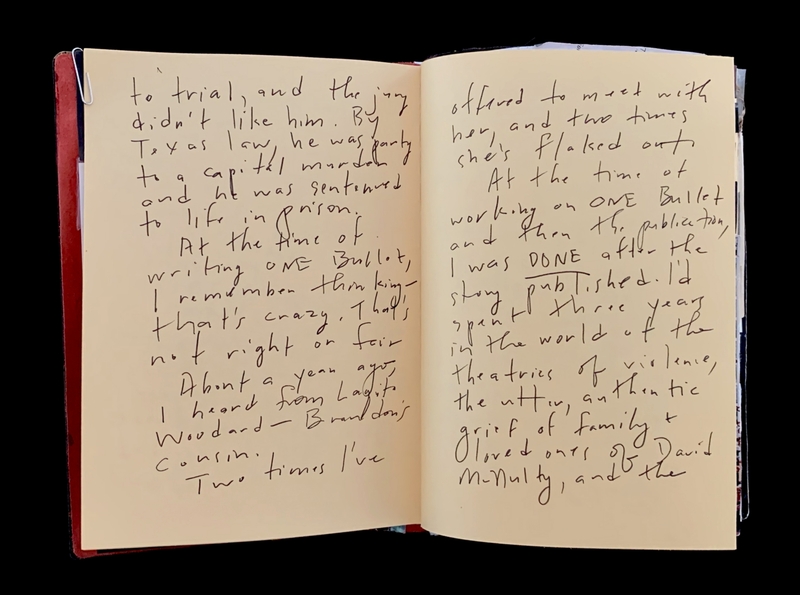 to trial, and the jury
didn't like him. By
Texas law, he was party
to a capital murder
and he was sentenced
to life in prison.
At the time of
writing ONE Bullet,
I remember thinking—
that's crazy. That's
not right or fair
About a year ago,
I heard from
Woodard — Brandon's
cousin.
Two times I've
offered to meet with
her, and two times
she's flaked out.
At the time of
working on ONE Bullet
and then the publication,
I was DONE after the
story published. I'd
spent three years
in the world of the
theatrics of violence,
the utter, authentic
grief of family +
loved ones of David
McNulty, and the